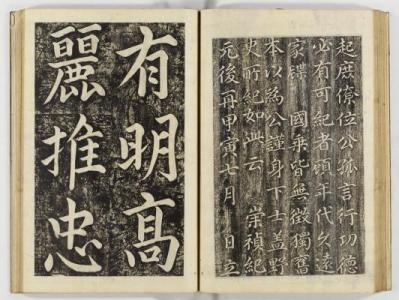 起庶僚位公孤言行功德
必有可紀者顧年代久遠
家牒 國乘皆無徵獨舊
本以為公謹身下士盖野
史所紀如此云 崇禎紀
元後再甲寅七月 日立
有明高
麗推忠